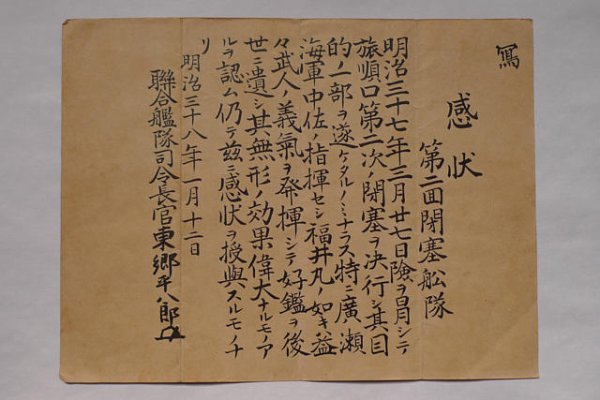 寫
感状
第二回閉塞舩隊
明治三十七年三月廿七日險ヲ冒シテ
旅順口第二次ノ閉塞ヲ決行シ其目
的ノ一部ヲ遂ケタルノミナラス特ニ廣瀬
海軍中佐ノ指揮セシ福井丸ノ如キ益
々武人ノ義氣ヲ発揮シテ好鑑ヲ後
世ニ遺シ其無形ノ効果偉大ナルモノア
ルヲ認ム仍テ茲ニ感状ヲ授與スルモノナ
リ
明治三十八年一月十二日
聯合艦隊司令長官東郷平八郎